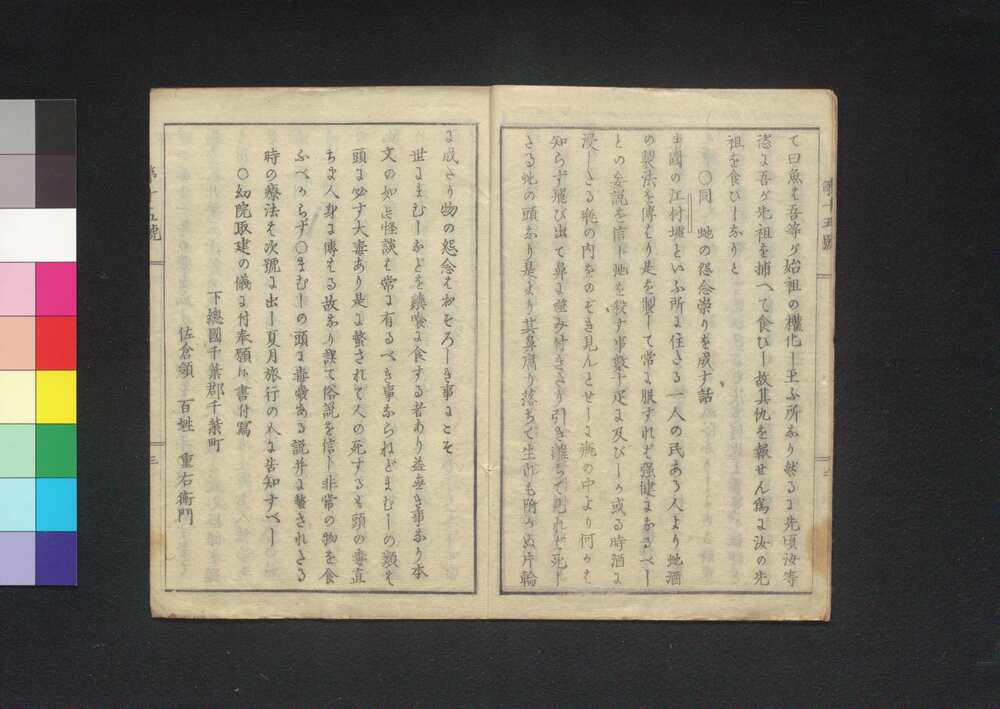 て曰魚は吾等が始祖の權化し玉ふ所なり然るに先頃汝等
恣に吾が先祖を捕へて食ひし故其仇を報せん爲に汝の先
祖を食ひしなりと
〇同 虵の怨念崇りを成す話
國の江村堰といふ所に住さる一人の民ある人より虵酒
の製法を傳はり是を製して常に服すれば强健になるべし
との妄説を信じ虵を殺す事數十疋に及びしが或る時酒に
浸しさる瓶の内をのぞき見んとせしに瓶の中より何かは
知らず飛び出て鼻に噬み付きさり引き離ちて見れば死し
さる虵の頭なり是より其鼻腐り落ちて生れも附かぬ片輪
に成さり物の怨念はおそろしき事にこそ
世にまむしなどを喰に食する者あり益無き事なり本
文の如怪談は常に有るべき事ならねどまむしの類は
頭に必ず大毒あり是に螫されて人の死するも頭の毒直
ちに人身に傳はる故なり誤て俗説を信じ非常の物を食
ふべからず〇まむしの頭に毒ある説并に螫されさる
時の療法は次號に出し夏月旅行の人に告知すべし
〇幼院取建の儀に付奉願書付寫
下總國千葉郡千葉町
佐倉領 百姓 重右衞門
第十五號
三